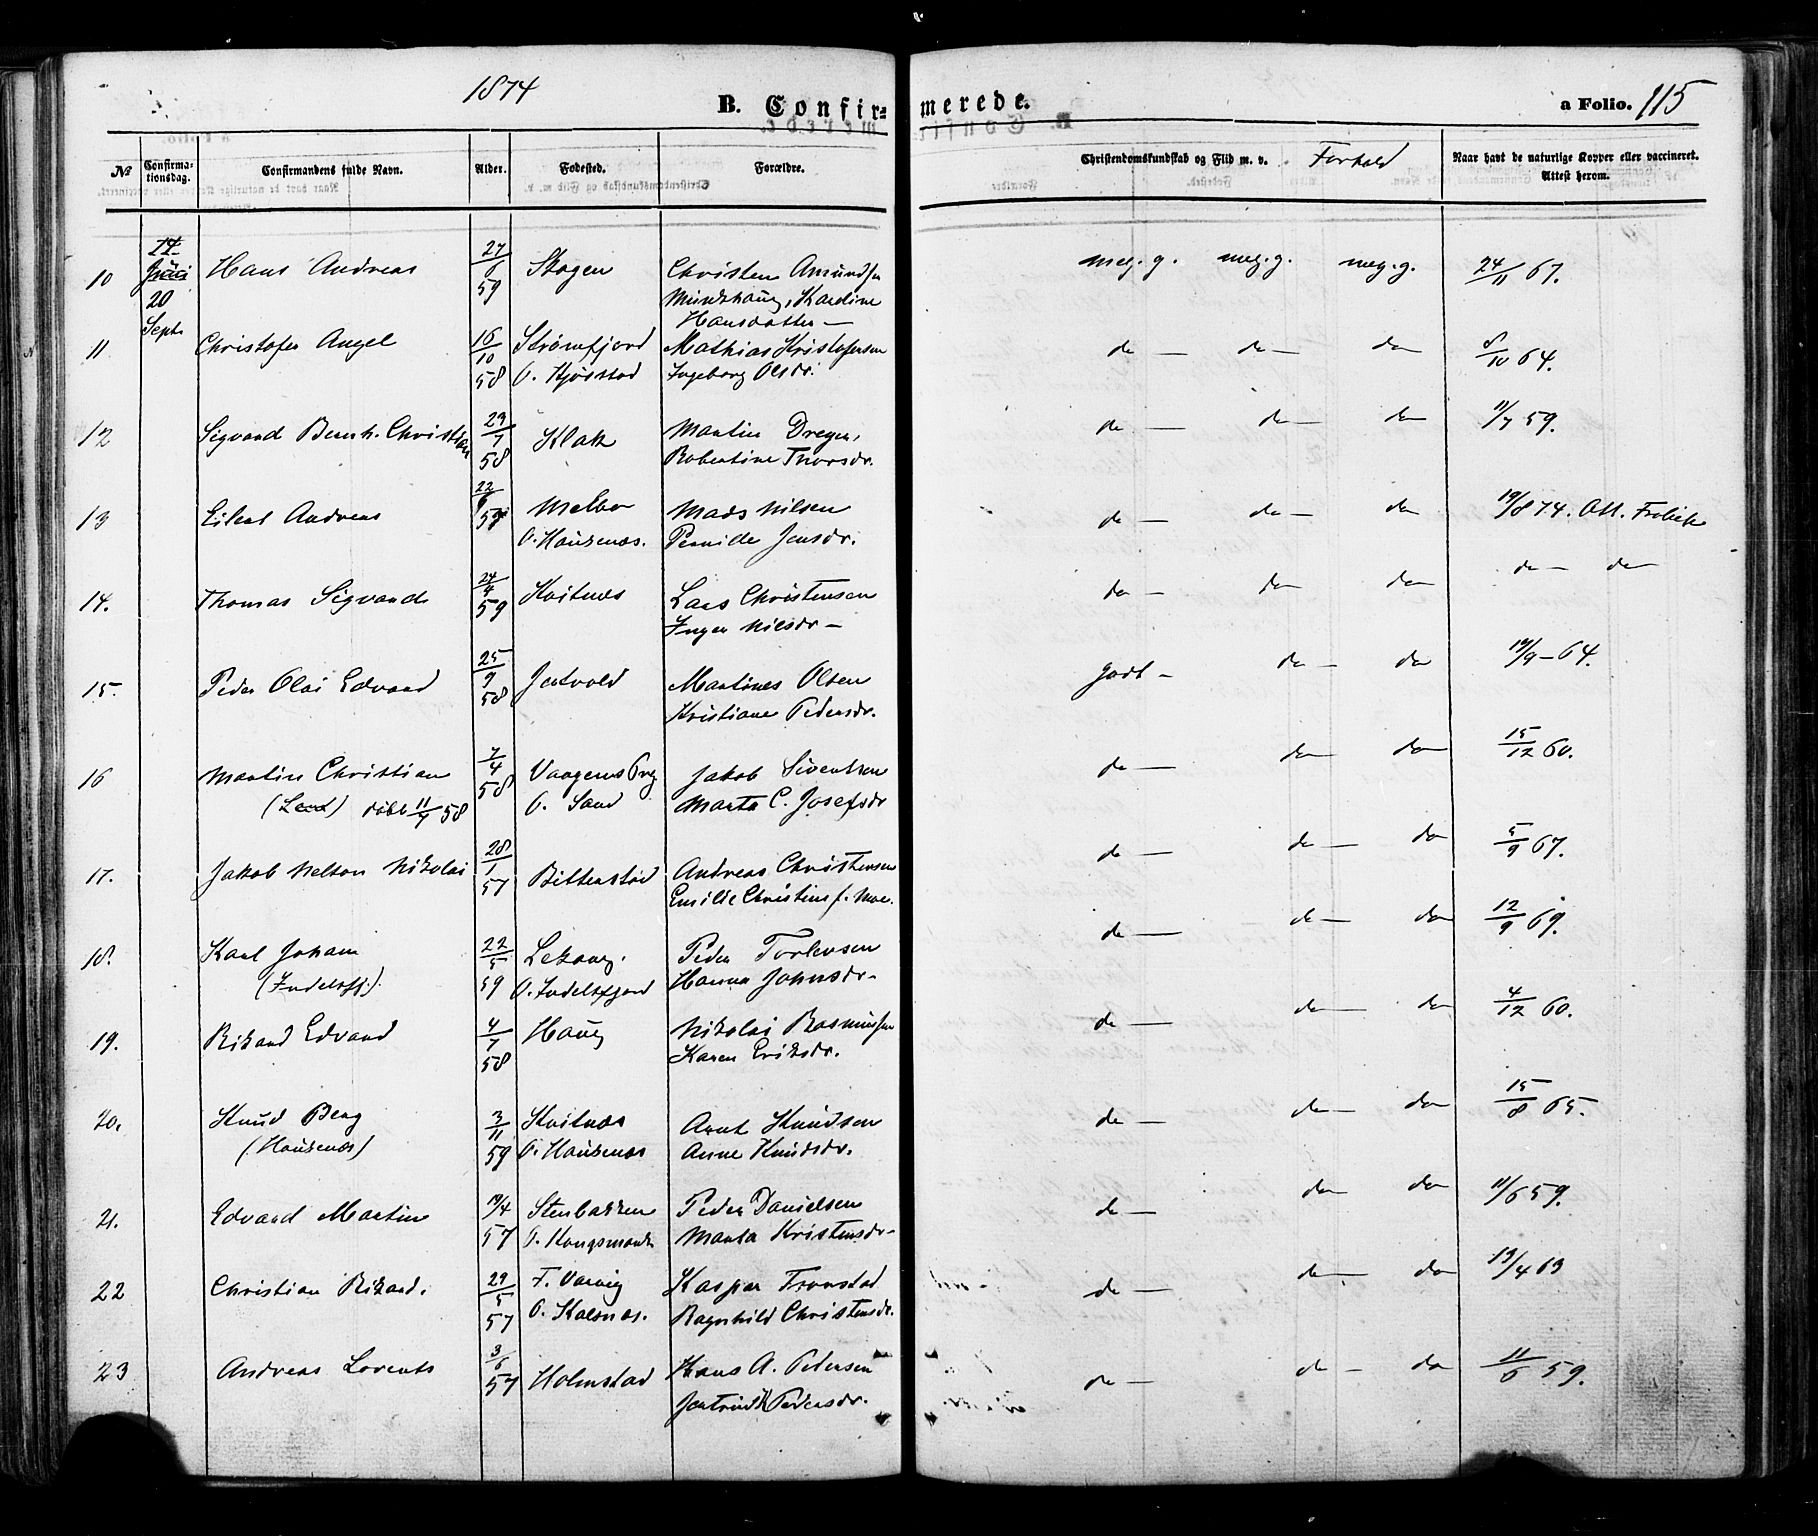 1874
B. Confirmerede.
a Folio. 115
No Confirmationsdag. Confirmandens fulde Navn. Alder. Fødested. Forældre. Christendomskundskab og Flid m. v. Forhold Naar havt de naturlige Kopper eller vaccineret. Attest herom.
14
10 Juni Hans Andreas 59 Skogen Christen Amundsen meg. g. meg. g. meg. g. 24/11 67.
20 Karoline
Sept. Hansdatter —
11 Christofer Angel 16/10 58 Strømfjord Mathias Kristofersen do — do — do 8/10 64.
O. Kjøsstad Ingeborg Olsdr.
12 Sigvard Bernh. Christian 58 Klak Martin Dreyer, do — do — do 11/7 59.
Robertine Thorsdr.
13 Eilert Andreas Melbo Mads Nilsen do — do — do 19/8 74. Att.
O. Haukenæs. Pernille Jensdr.
14. Thomas Sigvard 24/4 59 Kvitnæs Lars Christensen do — do do do — do
Inger Nilsdr —
15. Peder Olai Edvard 25/9 58 Jentvold Martines Olsen godt — do — do 19/9 — 64.
Kristiane Pedersdr.
16 Martin Christian 7/4 58 Jakob Sivertsen do — do — do 15/12 60.
døbt 11/4 58 O. Sand Marta C. Josefsdr
17. Jakob Nelton Nikolai 28/1 57 Bitterstad Andreas Christensen do — do — do 5/9 67.
Emilie Christine f. Moe.
18. Karl Johan 22/5 59 Lekang. Peder Torlevsen do — do — do 12/9 69.
(Indelsfj.). O. Indelsfjord Hanna Johnsdr —
19. Rikard Edvard 4/7 58 Haug Nikolai Rasmussen do — do — do 4/12 60.
Karen Eriksdr.
20. Knud Berg 3/11 59 Kvitnæs Arnt Knudsen do — do — do 15/8 65.
(Haukenæs) O. Haukenæs Anne Knudsdr.
21. Edvard Martin 19/4 57 Stenbakken Peder Danielsen do — do do 11/6 59.
O. Kongsmark Marta Kristensdr —
22 Christian Rikard. 29/5 57 F. Varvig Kaspar Tronstad do — do — do 19/4 63
O. Kalsnæs. Ragnhild Christensdr.
23 Andreas Lorents 57 Holmstad Hans A. Petersen do — do — do 11/6 59.
Jentrud Pedersdr.